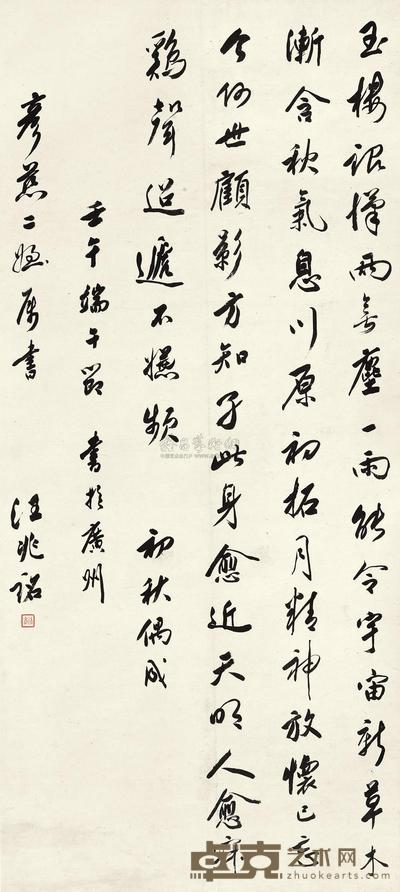 玉樓銀漢兩無塵一雨能令宇宙新草木
漸含秋氣息川原初拓月精神放懷已忘
今何世顧影方知子此身愈近天明人愈寂
鷄聲迢遞不嫌頻 初秋偶成
壬午端午節 書於廣州
彥慈二姪屬書 汪兆銘
卓克艺术网
zhuokearts.com